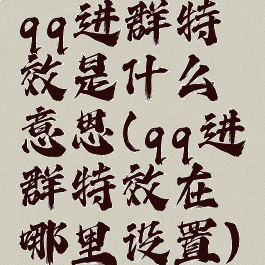 qq进群特
效是什么
意思(qq进
群特效在
哪里设置)